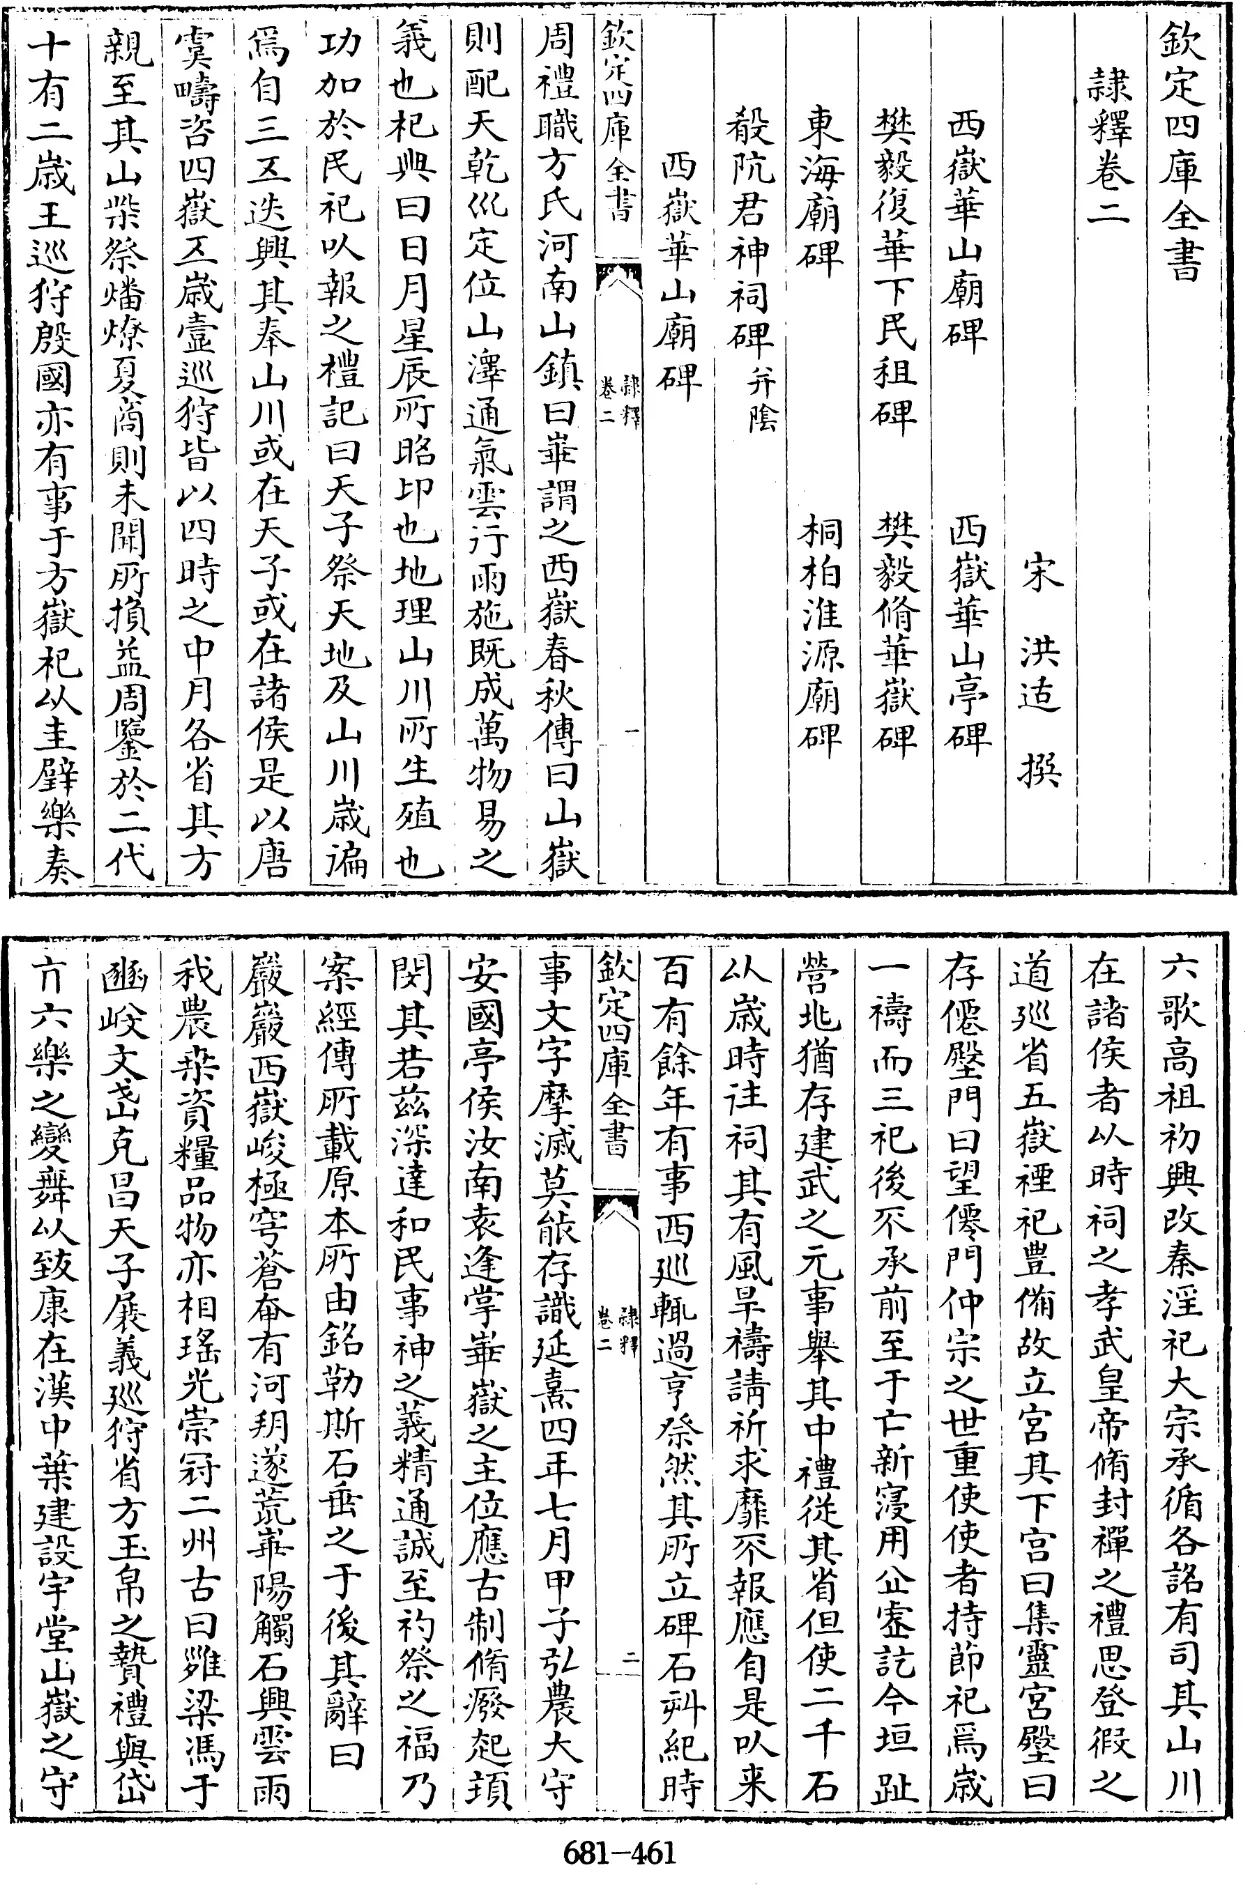 欽定四庫全書
隷釋卷二
宋 洪适 撰
西嶽華山廟碑 西嶽華山亭碑
樊毅復華下民租碑 樊毅脩華嶽碑
東海廟碑 桐柏淮源廟碑
殽阬君神祠碑 并陰
西嶽華山廟碑
欽定四庫全書 隷釋 卷二 一
周禮職方氏河南山鎮曰崋謂之西嶽春秋傳曰山嶽
則配天乾巛定位山澤通氣雲行雨施既成萬物易之
義也杞典曰日月星辰所昭卬也地理山川所生殖也
功加於民祀以報之禮記曰天子祭天地及山川歲徧
焉自三五迭興其奉山川或在天子或在諸侯是以唐
虞疇咨四嶽五歲壹巡狩皆以四時之中月各省其方
親至其山柴祭燔燎夏商則未聞所損益周鑒於二代
十有二歲王巡狩殷國亦有事于方嶽祀以圭璧樂奏
六歌高祖初興改秦淫祀大宗承循各詔有司其山川
在諸侯者以時祠之孝武皇帝脩封禪之禮思登假之
道巡省五嶽禋祀豐備故立宮其下宮曰集靈宮壂曰
存僊壂門曰望僊門仲宗之世重使使者持節祀焉歲
一禱而三祀後不承前至于亡新寖用丘虛訖今垣趾
營兆猶存建武之元事舉其中禮從其省但使二千石
以歲時往祠其有風旱禱請祈求靡不報應自是以来
百有餘年有事西巡輒過亨祭然其所立碑石刻紀時
欽定四庫全書 隷釋 卷二 二
事文字摩滅莫能存識延熹四年七月甲子弘農大守
安國亭侯汝南袁逢掌崋嶽之主位應古制脩癈起頓
閔其若兹深達和民事神之義精通誠至礿祭之福乃
案經傳所載原本所由銘勒斯石垂之于後其辭曰
巖巖西嶽峻極穹蒼奄有河朔遂荒崋陽觸石興雲雨
我農桒資糧品物亦相瑤光崇冠二州古曰雝梁馮于
豳岐文武克昌天子展義巡狩省方玉帛之贄禮與岱
亢六樂之變舞以致康在漢中葉建設宇堂山嶽之守
681-461